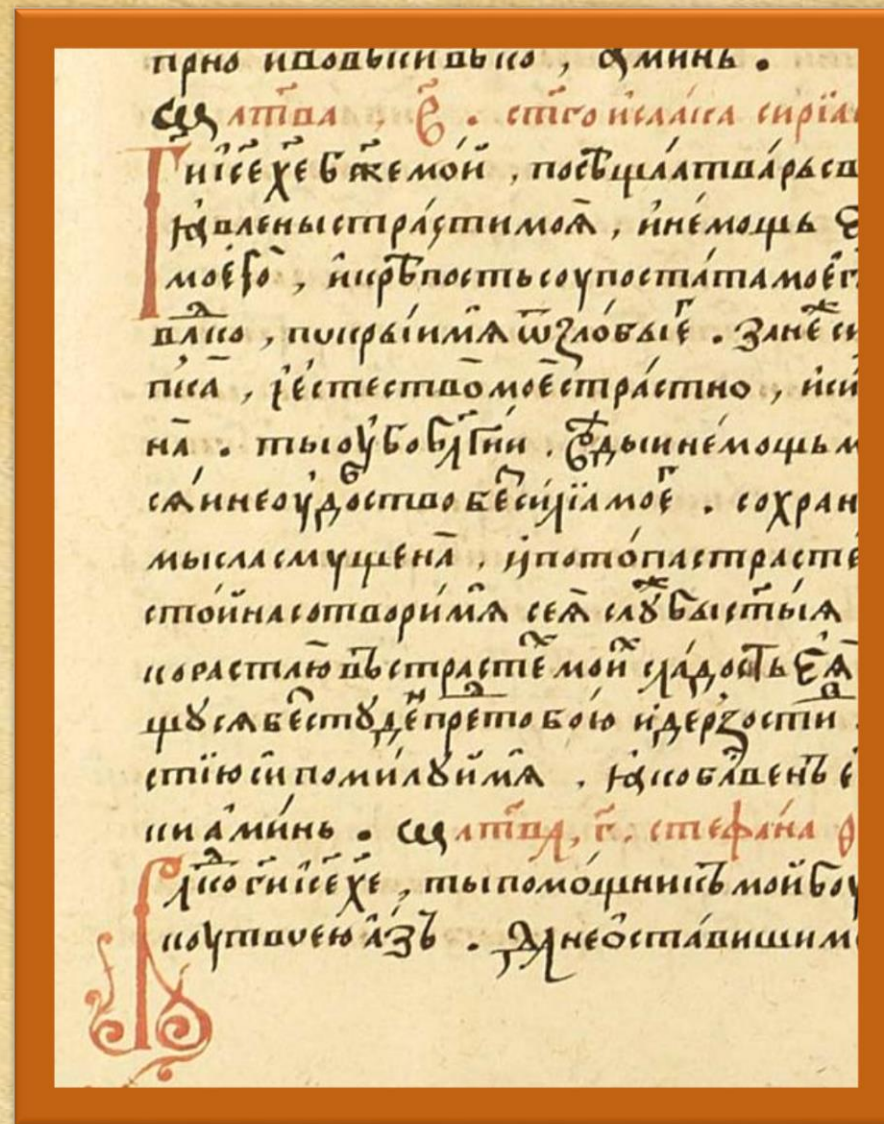 прно ивовѣки вѣко, аминь.
мл҃тва, в҃. ст҃го исаака сирїа
Г҃и і҃се х҃е б҃же мо́й, посѣщаѧ тва́рь св
ꙗвлены стра́сти моѧ̀, и҆ не́мощь є
моегѡ̀, и҆ крѣ́пость соупоста́та моег
влⷣко, покры́й мѧ ѿ ѕло́бы єгⷪ. Занеⷤ си
пка, і҆ є҆стество̀ мое стра́стно, и҆ си
на. ты оу҆бо бл҃гі́й. вⷤды и҆ не́мощь м
сѧ́ и҆ неоу҆до́бство беси́лїа моегⷪ. сохран
мысла смуще́на, и҆ пото́па страсте
сто́йна сотвори́ мѧ сеѧ̀ слꙋ́жбы ст҃ы́ѧ
ко растлю̀ въ страстеⷯ мои́ⷯ сла́дость єѧ̀
щꙋсѧ бестꙋ́деⷩ преⷣ тобо́ю и҆ де́рзости
стїю сѝ поми́лꙋй мѧ. ꙗ҆́ко бл҃гⷭ҇ве́нъ є
ки а҆ми́нь. мл҃тва, г҃. стефа́на
Влⷣко г҃и і҃се х҃е, ты помо́щникъ мо́й боу
коу твоею а҆́зъ. Да не ѡ҆ста́виши м